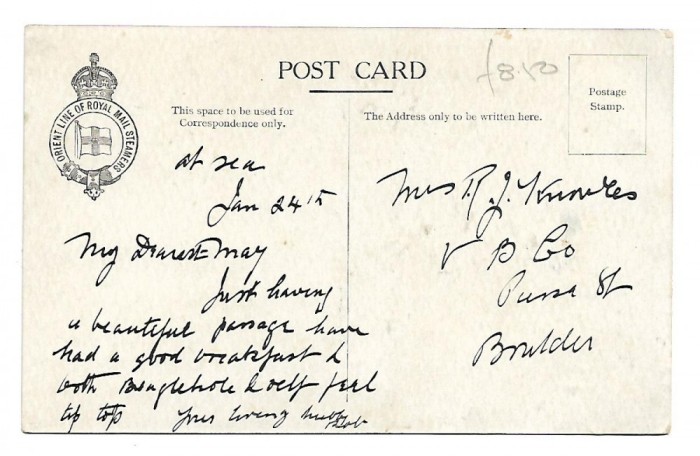 POST CARD
£8.50
ORIENT LINE OF ROYAL MAIL STEAMERS
This space to be used for
Correspondence only.
The Address only to be written here.
Postage
Stamp.
at sea
Jan 24th
My Dearest May
Just having
a beautiful passage have
had a good breakfast &
both Beaglehole & self feel
tip top Your loving hubby
Bob
Mrs R. J. Knowles
V B Co
St
Boulder